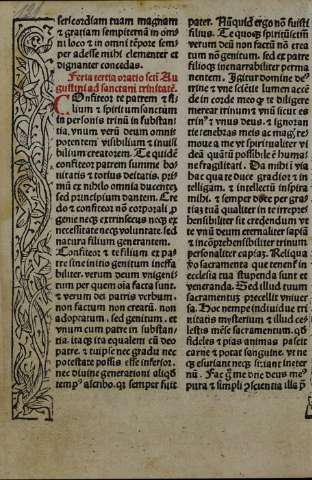 sericordiam tuam magnam
& gratiam sempiternā in omni
loco & in omni tēpore semper
adesse mihi clementer et
dignanter concedas.
Feria tertia oratio scti Au
gustini ad sanctam trinitatē.
Confiteor te patrem & fi
lium & spiritum sanctum
in personis trinū in substan
tia, vnum verū deum omni
potentem visibilium & inuisi
bilium creatorem. Te quidē
confiteor patrem summe bo
nitatis & totius deitatis pri
mū ex nihilo omnia ducentē
sed principium dantem. Cre
do & confiteor nō corporali
gene neqȝ extrinsecus neqȝ ex
necessitate neqȝ voluntate. sed
natura filium generantem.
Confiteor & te filium ex pa
tre sine initio genitum ineffa
biliter. verum deum vnigeni
tum per quem oīa facta sunt.
& verum dei patris verbum.
non factum non creatū. non
adoptatum. sed genitum. et
vnum cum patre in substan
tia. itaqȝ ita equalem cū deo
patre. neqȝ gradu nec
potestate possis esse inferior.
nec diuine generationi aliqd
tempis ascribo. qȝ semper fuit
pater. Nūquid ergo nō fuisti
filius. Te quoqȝ spiritūsctm
verum deū non factū nō crea
tum nō genitum. sed ex patre
filioqȝ inenarrabiliter perma
nentem. Igitur domine de
us vne sciētie lumen accē
de in corde meo qȝ te diligere
merear trinum & vnū sicut es
trin' & vnus deus. & ignoran
tie tenebras meis ac magis re
moue a me vt spiritualiter vi
deā quātū possibile ē humane
fragilitati. Da mihi via
hac qua te duce gradior & in
telligam. & intellectū inspira
mihi. & semper doce per gra
tiaȝ tuā qualiter in te irrepre
hensibiliter sit credendum vt
te vnū deum eternaliter sapiā
& incōprehensibiliter trinum
personaliter capiaȝ. Reliqua
vo sacramenta que tenent in
ecclesia tua stupenda sunt et
veneranda. Sed illud tuum
sacramentuȝ precellit vniuer
sa. Hoc nempe indiuidue tri
nitatis mysterium & illud ce
lestis mēse sacramentum. qd
fideles & pias animas pascit
carne & potat sanguine. vt ne
qȝ esuriant neqȝ sitiant in eter
nū. Fac me dne deus meus
pura & simplici ȝscientia illa